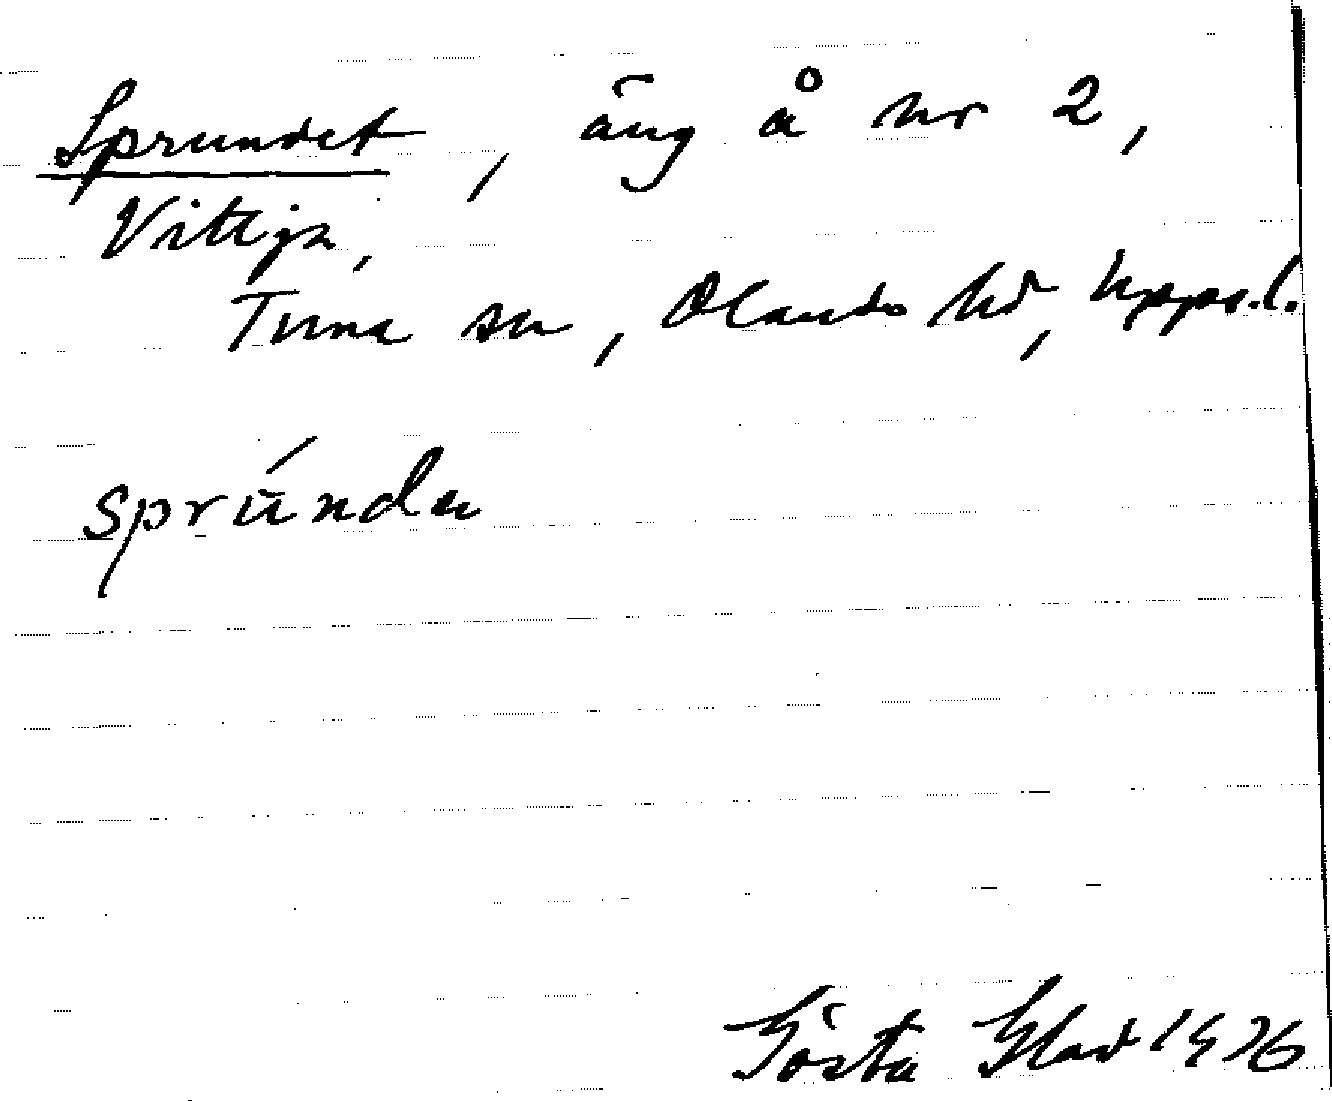 Sprundet, äng å nr 2,
Vittja,
Tuna sn, Olands hd, Upps. l.
sprúndu
Gösta Glad 1976